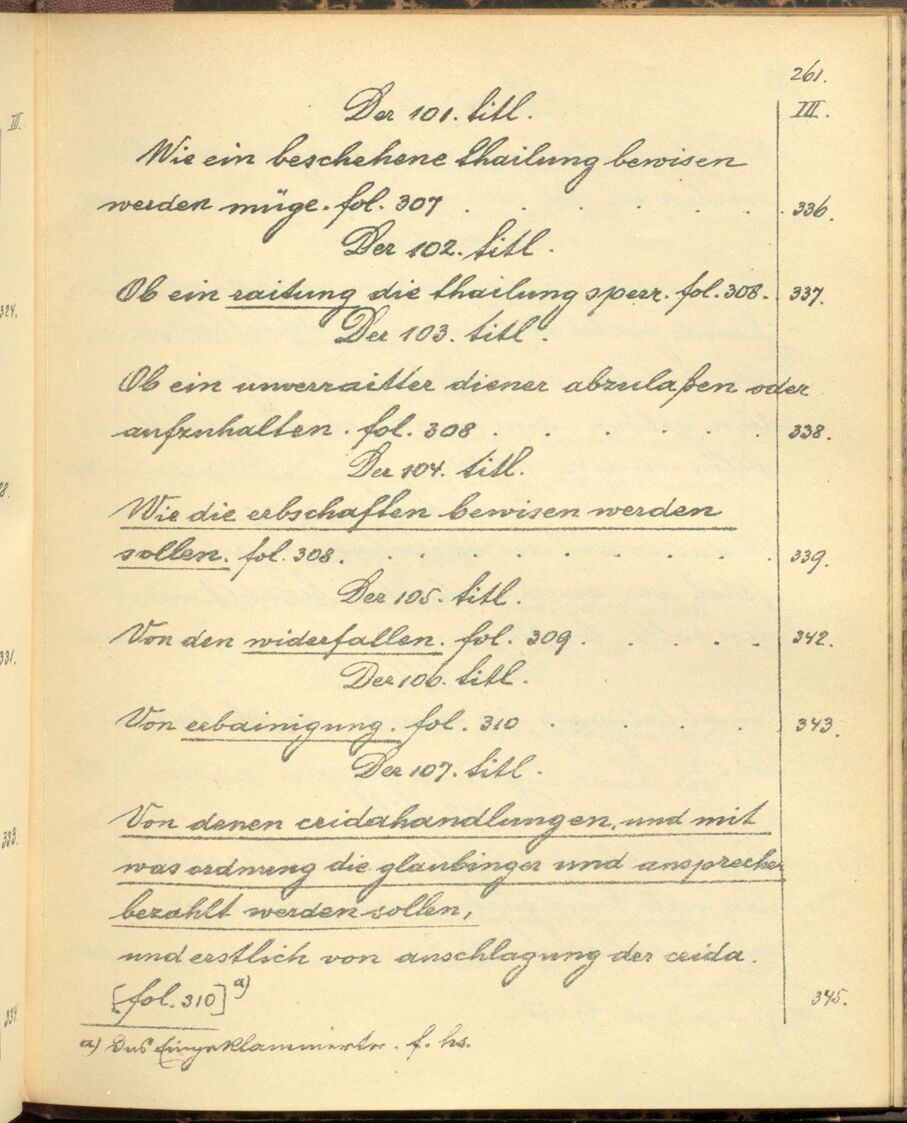 261.
III.
Der 101. titl.
Wie ein beschehene thailung bewisen
werden müge. fol. 307 . . . . . . 336.
Der 102. titl.
Ob ein raitung die thailung sperr. fol. 308. 337.
Der 103. titl.
Ob ein unverraitter diener abzulaßen oder
aufzuhalten. fol. 308 . . . . . 338.
Der 104. titl.
Wie die erbschaften bewisen werden
sollen. fol. 308. . . . . . . 339.
Der 105. titl.
Von den widerfallen. fol. 309 . . . . 342.
Der 106. titl.
Von erbainigung. fol. 310 . . . . 343.
Der 107. titl.
Von denen cridahandlungen, und mit
was ordnung die glaubinger und ansprecher
bezahlt werden sollen,
und erstlich von anschlagung der crida.
[fol. 310] a) 345.
a) Das Eingeklammerte. f. hs.
III.
324.
331.
333.
334.